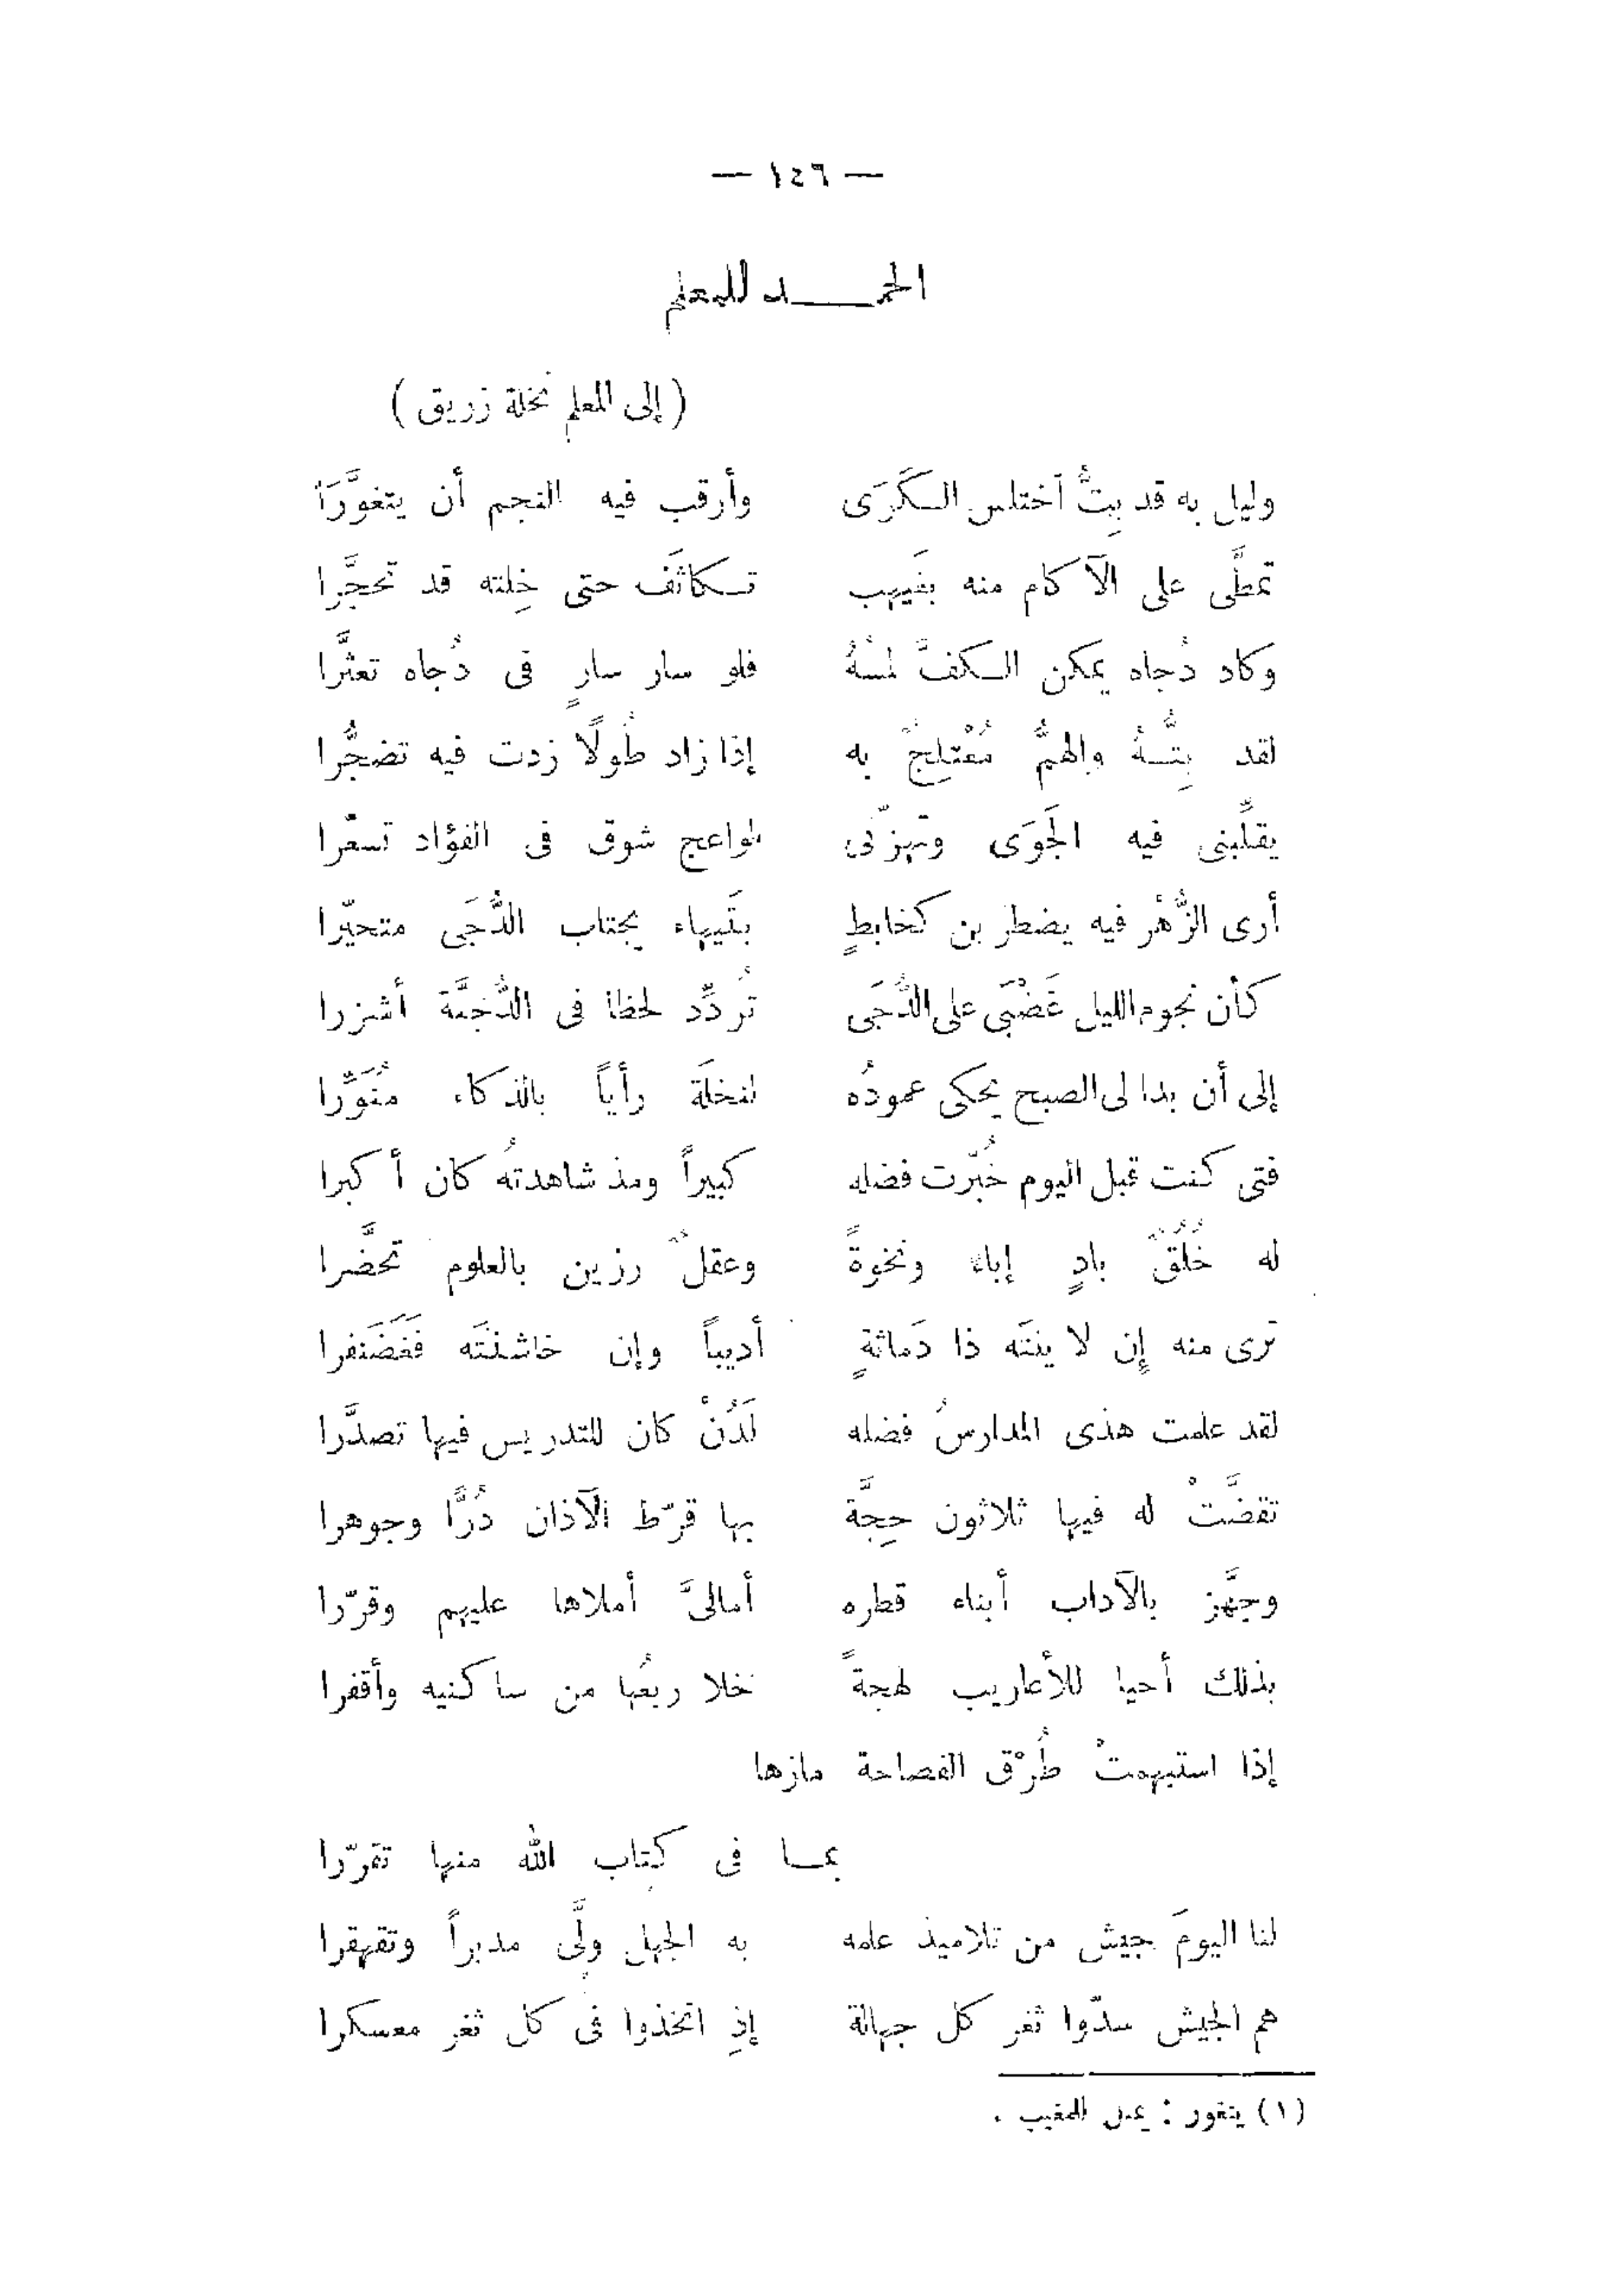 — ١٤٦ —
الحمـــــد للمعلم
( إلى المعلم نخلة زريق )
وليل به قد بِتُّ أختلس الكَرَى وأرقب فيه النجم أن يتغوَّرَا
تمطَّى على الآكام منه بغَيهب تكاثَف حتى خِلته قد تحجَّرا
وكاد دُجاه يمكن الكفَّ لمسُهُ فلو سار سارٍ فى دُجاه تعثَّرا
لقد بِتُّـهُ والهمُّ مُعْتلِجٌ به إذا زاد طُولًا زدت فيه تضجُّرا
يقلِّبنى فيه الجَوَى وتهزّنى لواعج شوق فى الفؤاد تسعّرا
أرى الزُّهْر فيه يضطر بن كخابطٍ بتَيهاء يجتاب الدُّجَى متحيّرا
كأن نجوم الليل غَضْبَى على الدُّجَى تُردِّد لحظا فى الدُّجنَّة أشزرا
إلى أن بدا لى الصبح يحكى عمودُه لنخلَة رأياً بالذكاء مُنَوَّرا
فتى كنت قبل اليوم خُبّرت فضله كبيراً ومذ شاهدتهُ كان أكبرا
له خُلُقٌ بادٍ إباء ونخوةً وعقلٌ رزين بالعلوم تحضَّرا
ترى منه إن لا ينتَه ذا دَماثةٍ أديباً وإن خاشنتَه فَغَضَنفرا
لقد علمت هذى المدارسُ فضله لَدُنْ كان للتدريس فيها تصدَّرا
تقضَّتْ له فيها ثلاثون حِجَّة بها قرّط الآذان دُرًّا وجوهرا
وجهَّز بالآداب أبناء قطره أمالىَّ أملاها عليهم وقرّرا
بذلك أحيا للأعاريب لهجةً خلا ربعُها من ساكنيه وأقفرا
إذا استبهمتْ طُرْق الفصاحة مازها
بمـا فى كتاب الله منها تقرّرا
لنا اليومَ جيش من تلاميذ علمه به الجهل ولَّى مدبراً وتقهقرا
هم الجيش سدّوا ثغر كل جهالة إذِ اتخذوا فى كل ثغر معسكرا
(١) يتغور : يميل للمغيب .